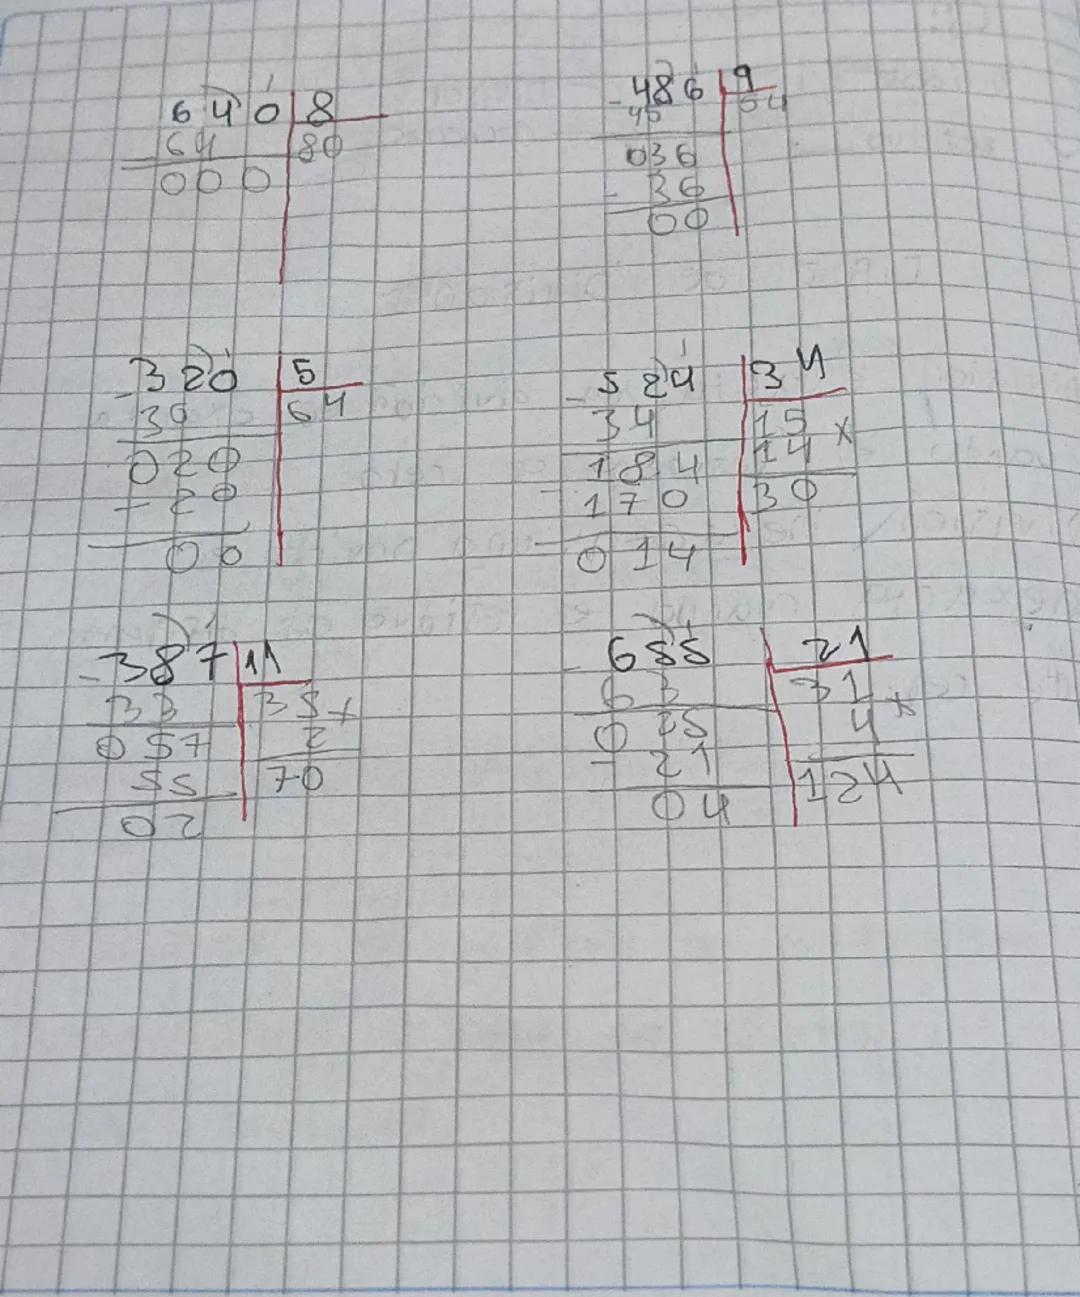 640 8
64 80
000
-486 9
45 54
036
- 36
00
-320 5
30 64
020
- 20
00
-524 34
34 15 x
184 14
-170 30
014
-387 11
33 35 x
057 2
55 70
02
-655 21
63 31 x
025 4
- 21 124
04